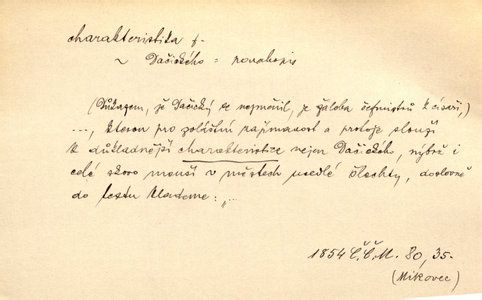 charakteristika f.
~ Dačického = povahopis
(Důkazem, že Dačický se nezměnil, je žaloba šefmistrů k císaři,)
..., kterou pro zvláštní zajímavost a protože slouží
k důkladnější charakteristice nejen Dačického, nýbrž i
celé skoro v městech usedlé šlechty, doslovně
do textu klademe: „...
1854 Č.Č.M. 80, 35.
(Mikovec)